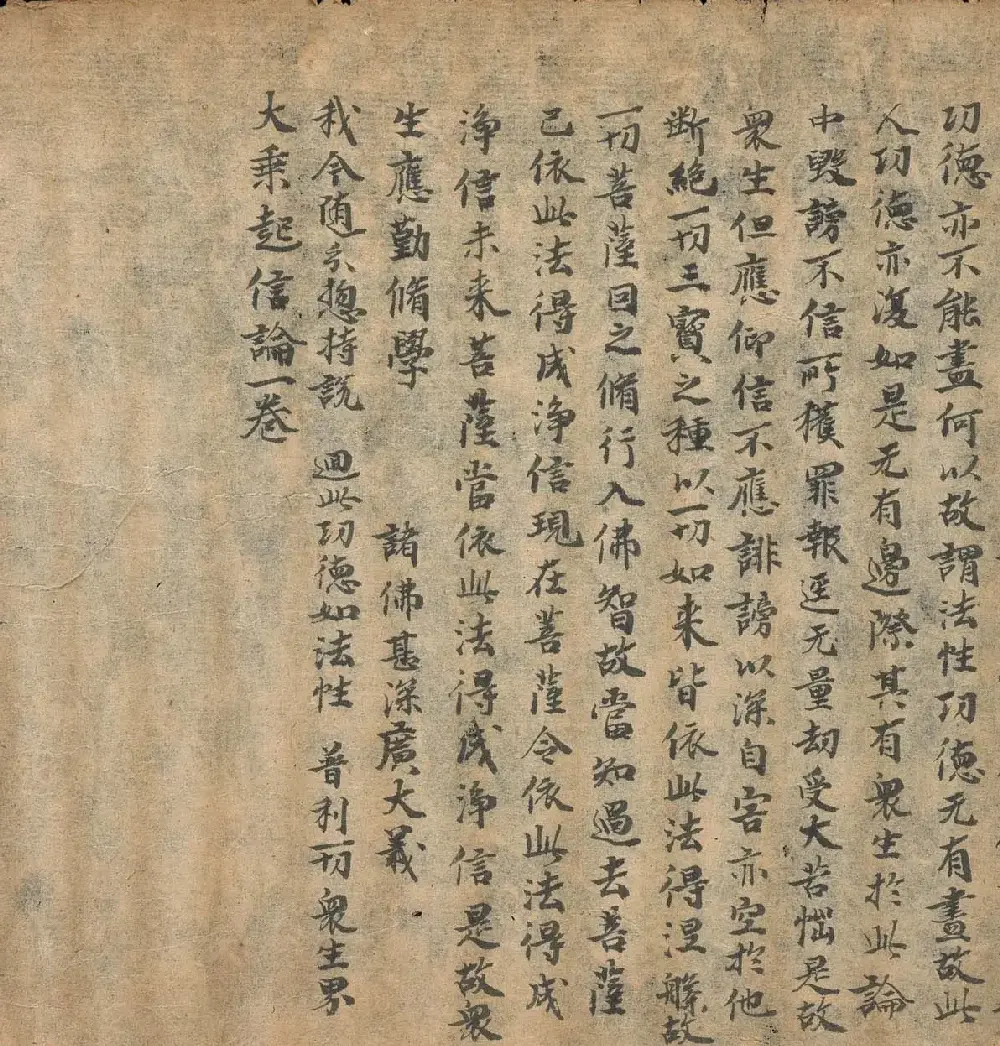 功德亦不能盡何以故謂法性功德无有盡故此
人功德亦復如是无有邊際其有衆生於此論
中毀謗不信所獲罪報逕无量劫受大苦惱是故
衆生但應仰信不應誹謗以深自害亦空於他
断絶一切三寶之種以一切如来皆依此法得涅槃故
一切菩薩因之脩行入佛智故當知過去菩薩
已依此法得成浄信現在菩薩令依此法得成
浄信未来菩薩當依此法得成浄信是故衆
生應勤脩學 諸佛甚深廣大義
我令随分揔持説 迴此功德如法性 普利一切衆生界
大乗起信論一卷